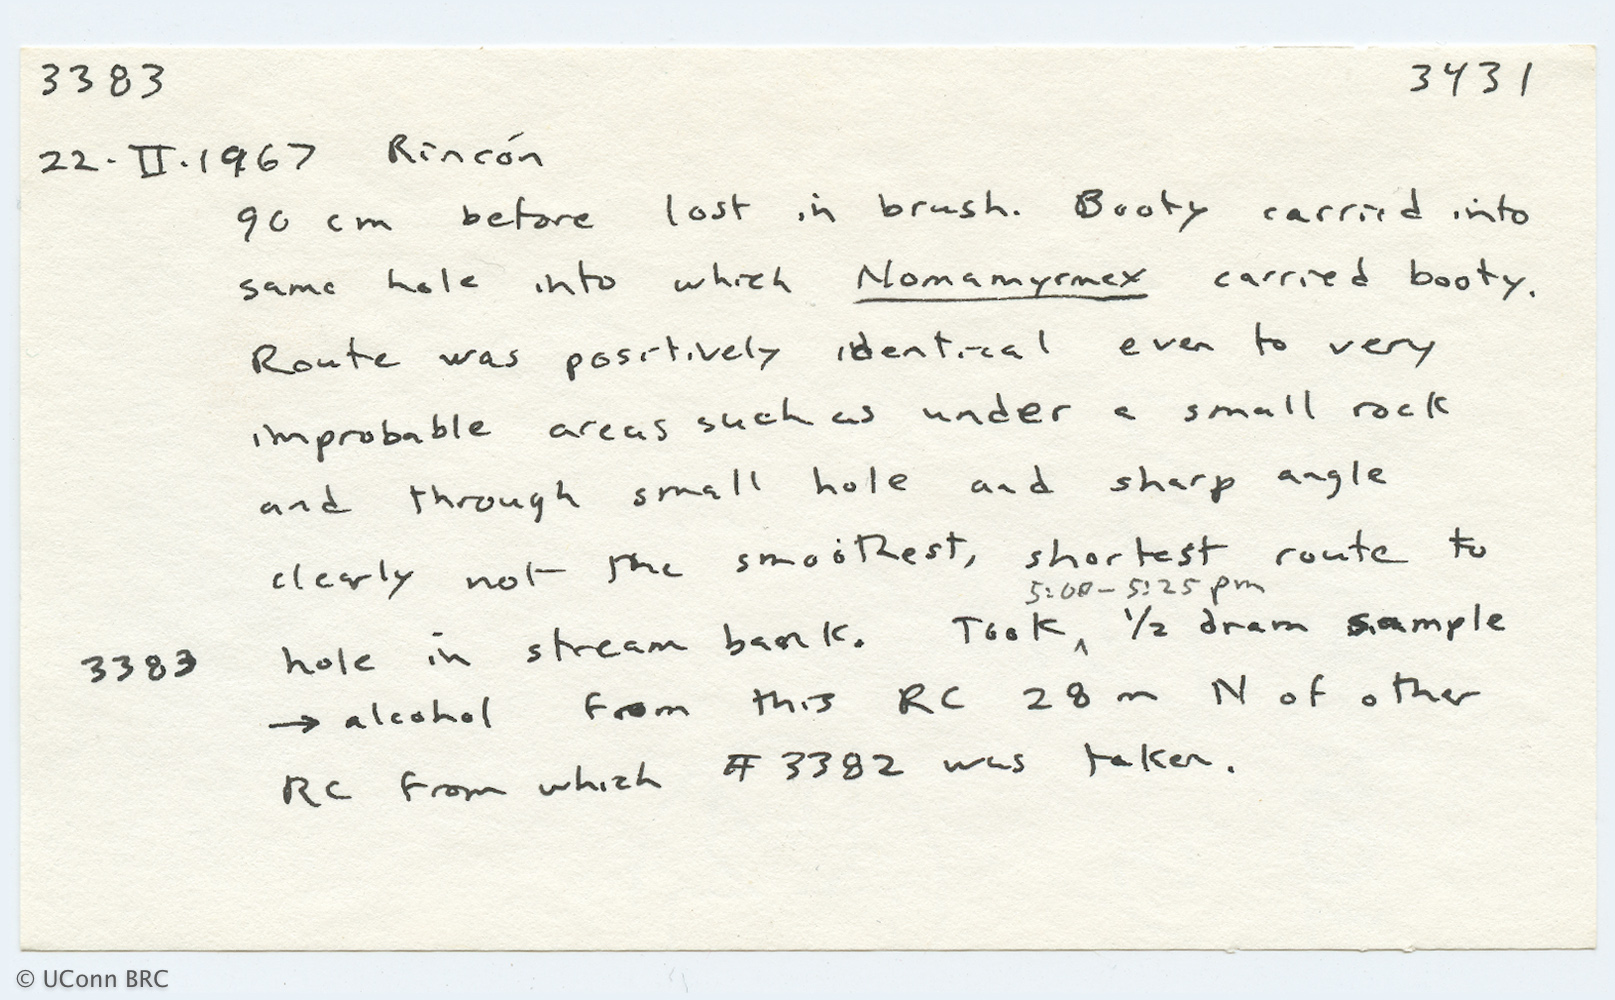 3383 3431
22.II.1967 Rincón
90 cm before lost in brush. Booty carried into
same hole into which Nomamyrmex carried booty.
Route was positively identical even to very
improbable areas such as under a small rock
and through small hole and sharp angle
clearly not the smoothest, shortest route to
5:00-5:25 pm
3383 hole in stream bank. Took ^ 1/2 dram sample
→ alcohol from this RC 28 m N of other
RC from which # 3382 was taken.
© UConn BRC